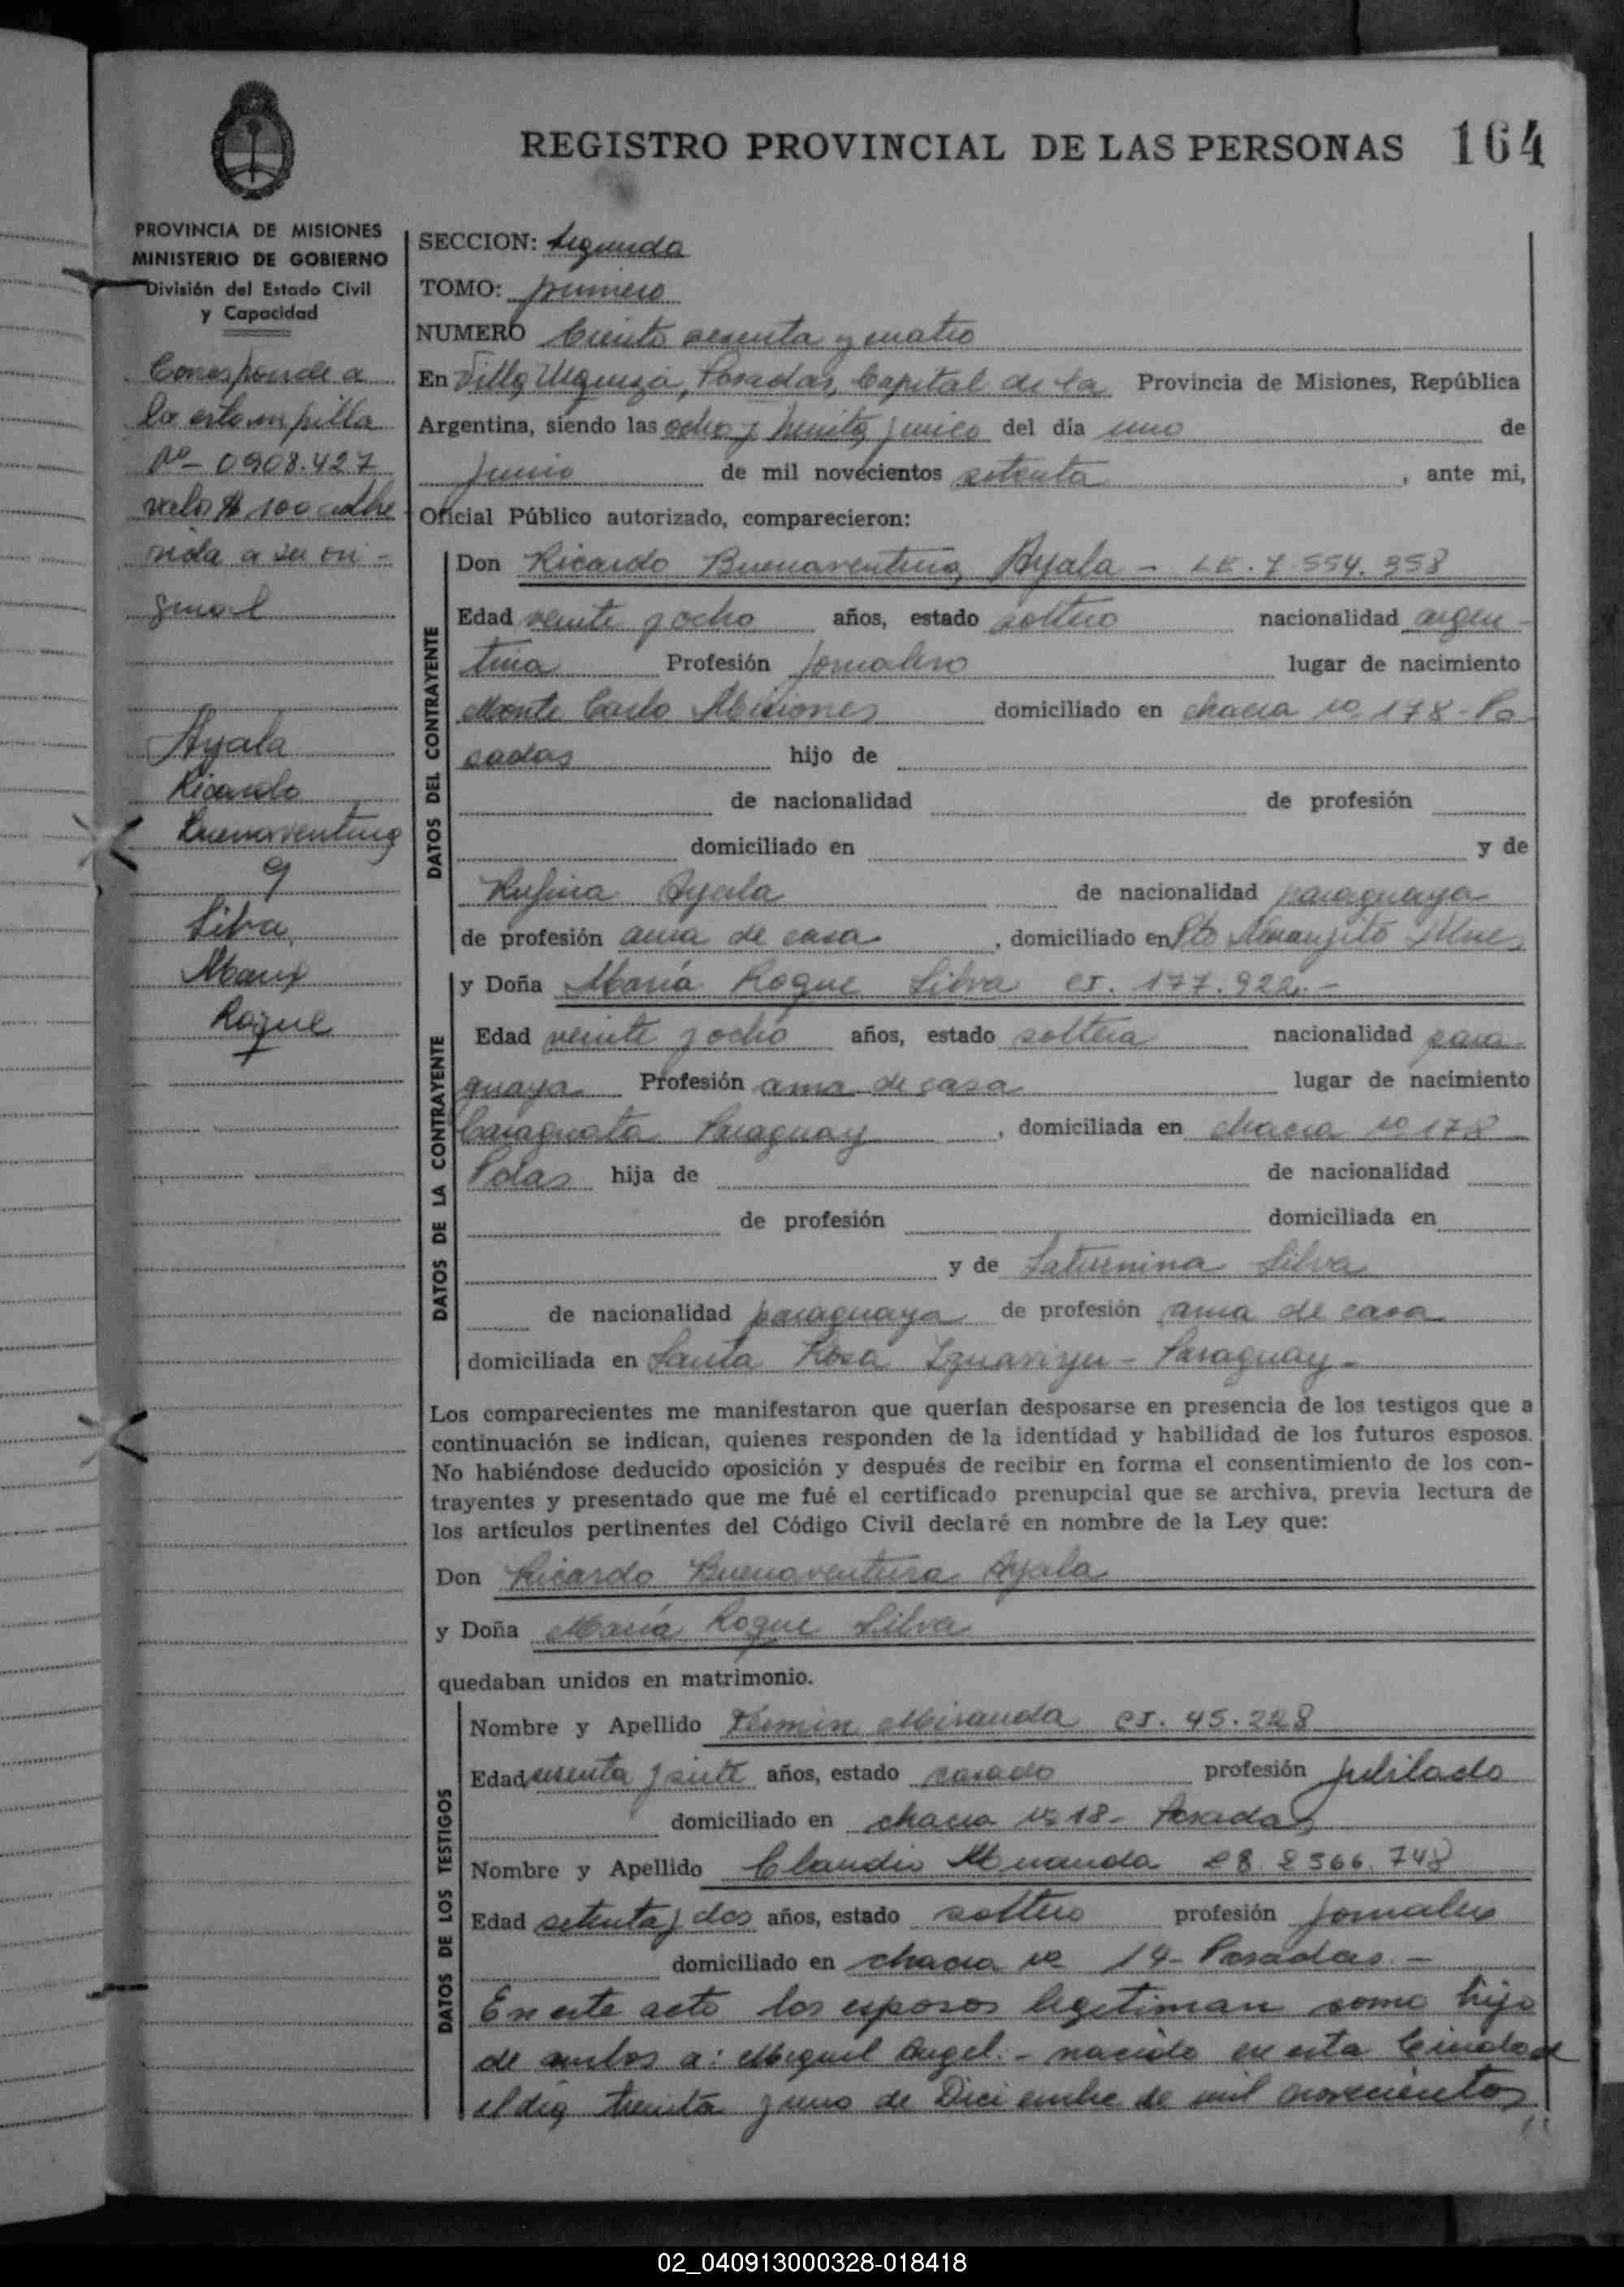 REGISTRO PROVINCIAL DE LAS PERSONAS 164
PROVINCIA DE MISIONES
MINISTERIO DE GOBIERNO
División del Estado Civil
y Capacidad
Corresponde a
la estampilla
Nº- 0908.427
valor $ 100 adhe
rida a su ori-
ginal
Ayala
Ricardo
Buenaventura
y
Silva
María
Roque
SECCION: segunda
TOMO: primero
NUMERO Ciento sesenta y cuatro
En Villa Urquiza, Posadas, Capital de la Provincia de Misiones, República
Argentina, siendo las ocho y treinta y cinco del día uno de
Junio de mil novecientos setenta, ante mi,
Oficial Público autorizado, comparecieron:
DATOS DEL CONTRAYENTE
Don Ricardo Buenaventura Ayala - LE. 7.554.358
Edad veinte y ocho años, estado soltero nacionalidad argen-
tina Profesión Jornalero lugar de nacimiento
Monte Carlo Misiones domiciliado en chacra no 178 - Po
sadas hijo de
de nacionalidad de profesión
domiciliado en y de
Rufina Ayala de nacionalidad paraguaya
de profesión ama de casa, domiciliado en Pto Naranjito
DATOS DE LA CONTRAYENTE
y Doña María Roque Silva CI. 177.922.-
Edad veinte y ocho años, estado soltera nacionalidad para-
guaya Profesión ama de casa lugar de nacimiento
Caraguata Paraguay, domiciliada en chacra no 178
Pdas hija de de nacionalidad
de profesión domiciliada en
y de Saturnina Silva
de nacionalidad paraguaya de profesión ama de casa
domiciliada en Santa Rosa - Paraguay-
Los comparecientes me manifestaron que querían desposarse en presencia de los testigos que a
continuación se indican, quienes responden de la identidad y habilidad de los futuros esposos.
No habiéndose deducido oposición y después de recibir en forma el consentimiento de los con-
trayentes y presentado que me fué el certificado prenupcial que se archiva, previa lectura de
los artículos pertinentes del Código Civil declaré en nombre de la Ley que:
Don Ricardo Buenaventura Ayala
y Doña María Roque Silva
quedaban unidos en matrimonio.
DATOS DE LOS TESTIGOS
Nombre y Apellido Fermin Miranda CI. 45.228
Edad sesenta y siete años, estado casado profesión jubilado
domiciliado en chacra no 18- Posadas
Nombre y Apellido Claudio Miranda 2366.748
Edad setenta y dos años, estado soltero profesión Jornalero
domiciliado en chacra no 14- Posadas.-
En este acto los esposos legitiman como hijo
de ambos a: Miguel Angel.- nacido en esta Ciudad
el día treinta y uno de Diciembre de mil novecientos
02_040913000328-018418